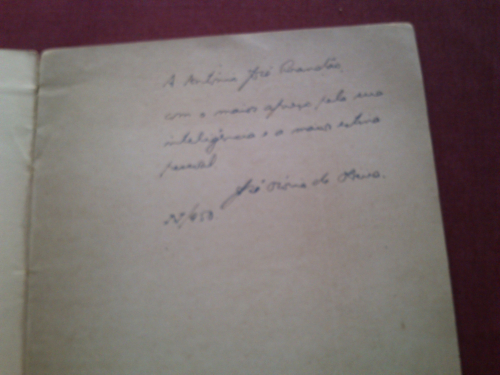 A António José Brandão,
com o maior apreço pela sua
inteligência e a maior estima
pessoal.
José Osório de Oliveira.